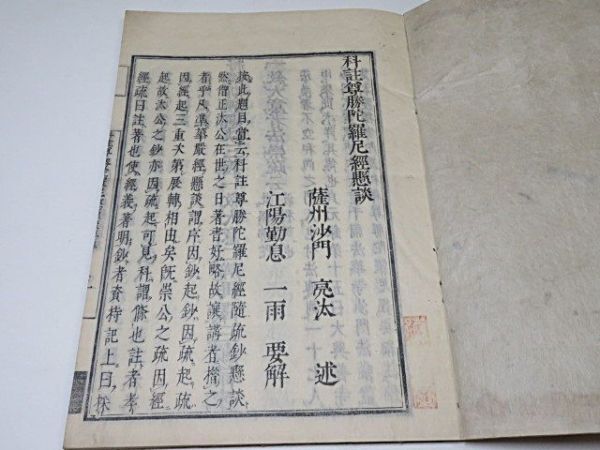 科註尊勝陀羅尼經懸談
薩州沙門 亮汰 述
江陽勤息 一雨 要解
按此題目當云科註尊勝陀羅尼經隨疏鈔懸談
然僧正汰公在世之日著書好略故讓講者擔之
者乎凡準華嚴經懸談謂序因鈔起鈔因疏起疏
因經起三重次第展轉相由矣旣崇公之疏因經
起故汰公之鈔亦因疏起可見科謂條也註者孝
經疏曰註著也使經義著明鈔者資持記上曰採